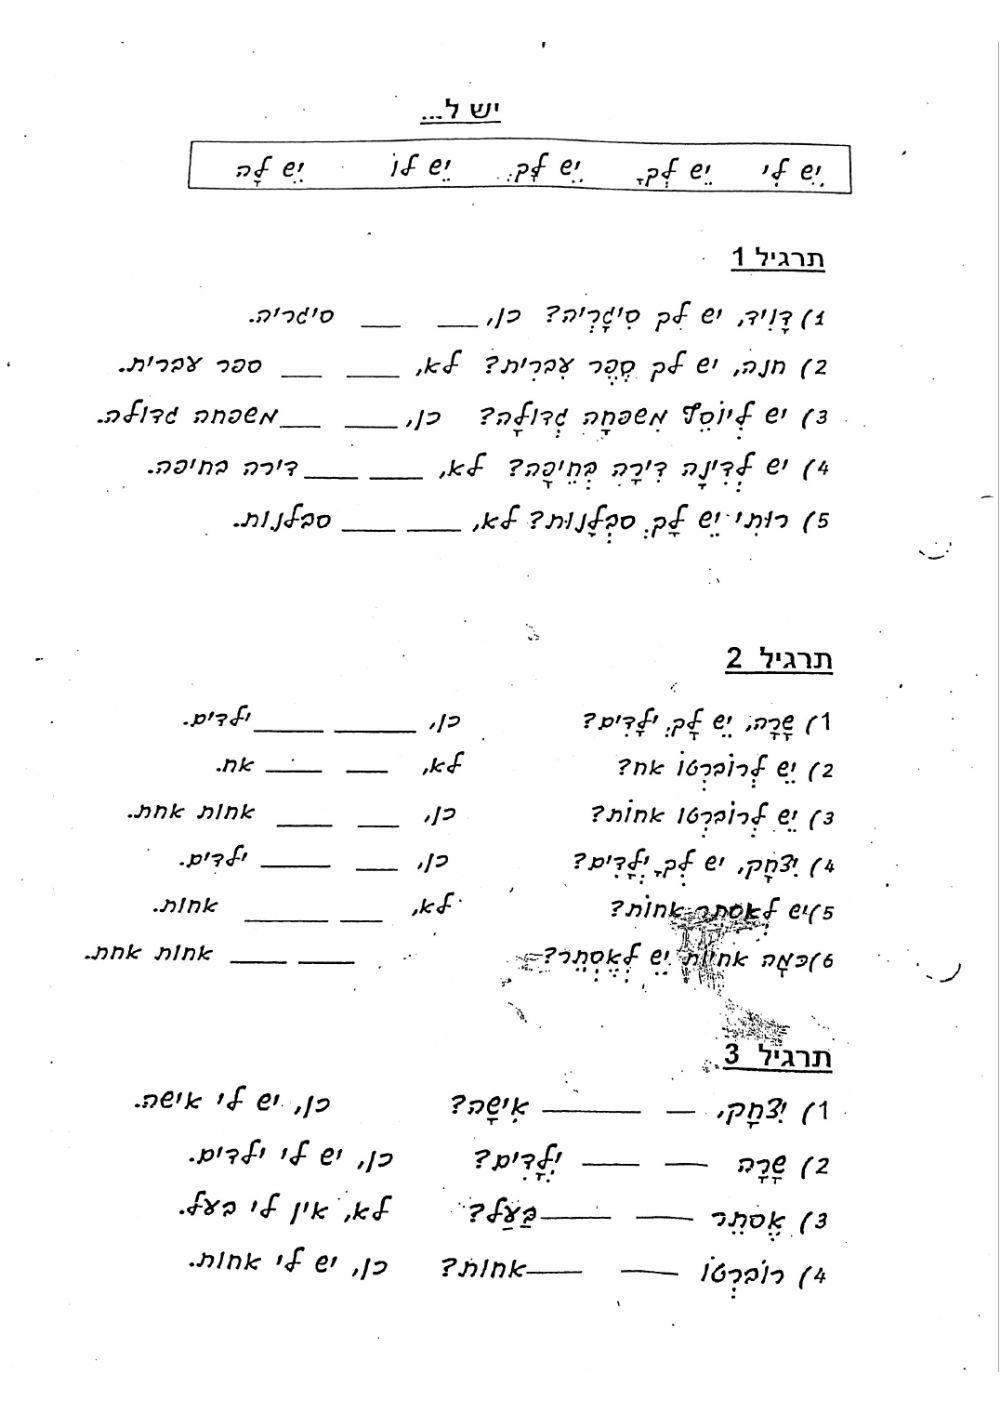 יש ל...
יֵש לִי יֵש לְךָ יֵש לָךְ יֵש לוֹ יֵש לָה
תרגיל 1
1) דָוִיד, יש לך סִיגָרְיה? כן, ___ ___ סיגריה.
2) חנה, יש לך סֵפֶר עִבְרִית? לא, ___ ___ ספר עברית.
3) יש לְיוֹסֵף מִשפּחָה גְדוֹלָה? כן, ___ ___ משפחה גדולה.
4) יש לְדִינָה דִירָה בְּחֵיפָה? לא, ___ ___ דירה בחיפה.
5) רותי יֵש לָךְ סבְלָנוּת? לא, ___ ___ סבלנות.
תרגיל 2
1) שָרָה, יֵש לָךְ יְלָדִים? כן, ___ ___ ילדים.
2) יֵש לְרוֹבּרְטוֹ אח? לא, ___ ___ אח.
3) יֵש לְרוֹבּרְטו אחוֹת? כן, ___ ___ אחות אחת.
4) יִצחָק, יש לְךָ יְלָדִים? כן, ___ ___ ילדים.
5) יש לְאסתר אחוֹת? לא, ___ ___ אחות.
6) כּמָה אחיות יֵש לְאֶסְתֵר? ___ ___ אחות אחת.
תרגיל 3
1) יִצחָק, ___ ___ אִישָה? כן, יש לי אישה.
2) שָרָה ___ ___ יְלָדִים? כן, יש לי ילדים.
3) אֶסתֵר ___ ___ בַּעַל? לא, אין לי בעל.
4) רוֹבּרְטוֹ ___ ___ אחות? כן, יש לי אחות.